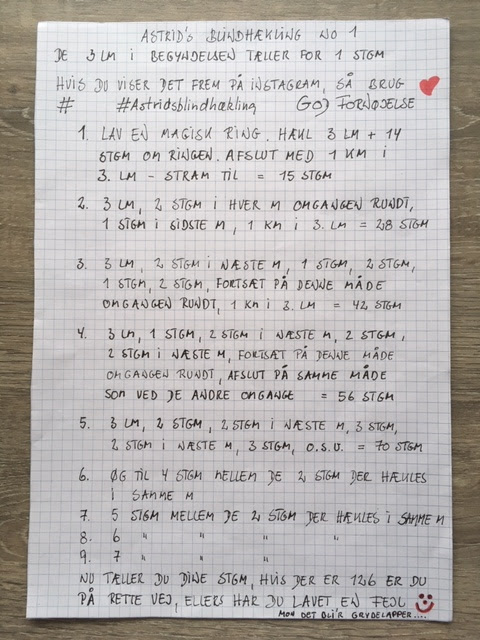 ASTRID'S BLINDHÆKLING NO 1
DE 3 LM I BEGYNDELSEN TÆLLER FOR 1 STGM
HVIS DU VISER DET FREM PÅ INSTAGRAM, SÅ BRUG
# #Astridsblindhækling GOD FORNØJELSE
1. LAV EN MAGISK RING. HÆKL 3 LM + 14
STGM OM RINGEN. AFSLUT MED 1 KM I
3. LM - STRAM TIL = 15 STGM
2. 3 LM, 2 STGM I HVER M OMGANGEN RUNDT,
1 STGM I SIDSTE M, 1 KM I 3. LM = 28 STGM
3. 3 LM, 2 STGM I NÆSTE M, 1 STGM, 2 STGM,
1 STGM, 2 STGM, FORTSÆT PÅ DENNE MÅDE
OMGANGEN RUNDT, 1 KM I 3. LM = 42 STGM
4. 3 LM, 1 STGM, 2 STGM I NÆSTE M, 2 STGM,
2 STGM I NÆSTE M, FORTSÆT PÅ DENNE MÅDE
OMGANGEN RUNDT, AFSLUT PÅ SAMME MÅDE
SOM VED DE ANDRE OMGANGE = 56 STGM
5. 3 LM, 2 STGM, 2 STGM I NÆSTE M, 3 STGM,
2 STGM I NÆSTE M, 3 STGM, O.S.V. = 70 STGM
6. ØG TIL 4 STGM MELLEM DE 2 STGM DER HÆKLES
I SAMME M
7. 5 STGM MELLEM DE 2 STGM DER HÆKLES I SAMME M
8. 6 " " " "
9. 7 " " "
NU TÆLLER DU DINE STGM, HVIS DER ER 126 ER DU
PÅ RETTE VEJ, ELLERS HAR DU LAVET EN FEJL
MON DET BLI'R GRYDELAPPER....